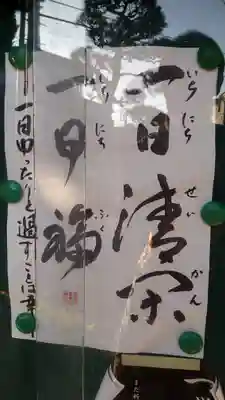 一日清閑
いちにち せい かん
一日福
いちにち ふく
一日ゆったりと過すことは幸